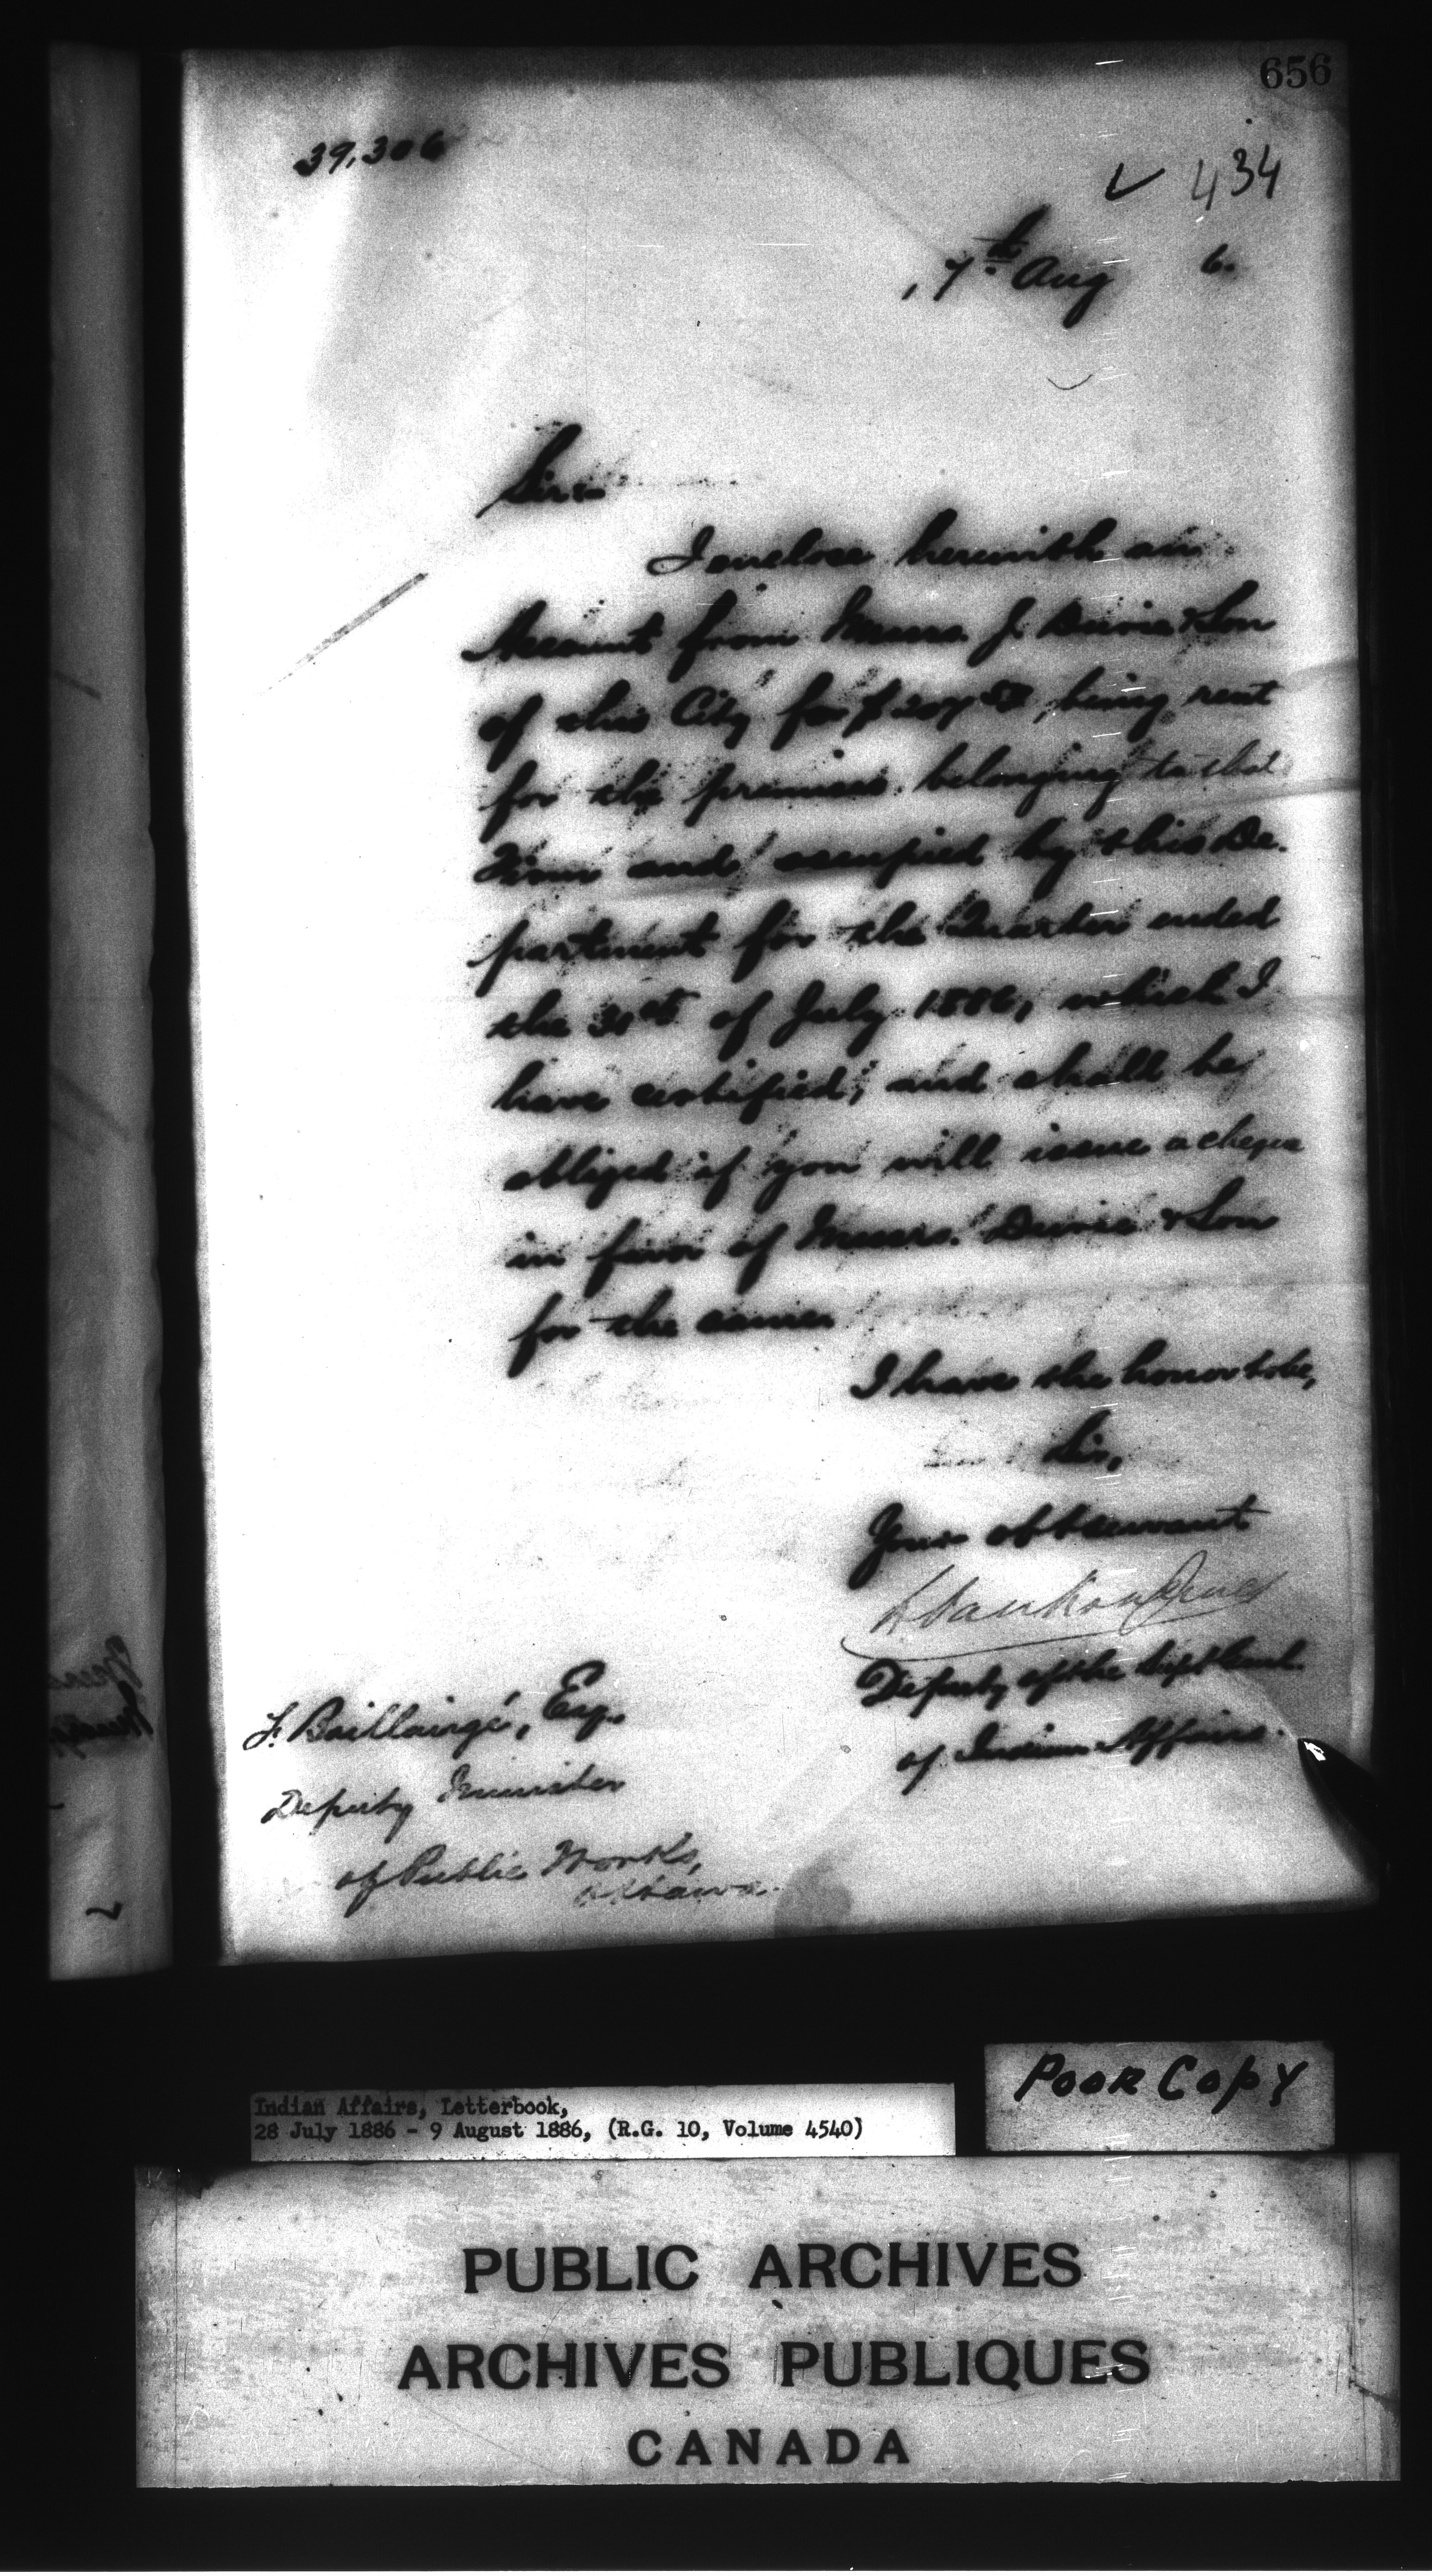 656
39,306
434
, 7th Aug 6.
Sir:-
I enclose herewith an
Account from Messrs. J. Durie & Son
of this City for $207.50, being rent
for the premises belonging to that
Firm and occupied by this De-
partment for the Quarter ended
the 31st of July 1886, which I
have certified, and shall be
obliged if you will issue a cheque
in favor of Messrs. Durie & Son
for the same.
I have the honor to be,
Sir,
Your obt servant
L Vankoughnet
Deputy of the Supt Genl.
of Indian Affairs.
F. Baillairgé, Esq.
Deputy Minister
of Public Works,
Ottawa.
POOR COPY
Indian Affairs, Letterbook,
28 July 1886 - 9 August 1886, (R.G. 10, Volume 4540)
PUBLIC ARCHIVES
ARCHIVES PUBLIQUES
CANADA